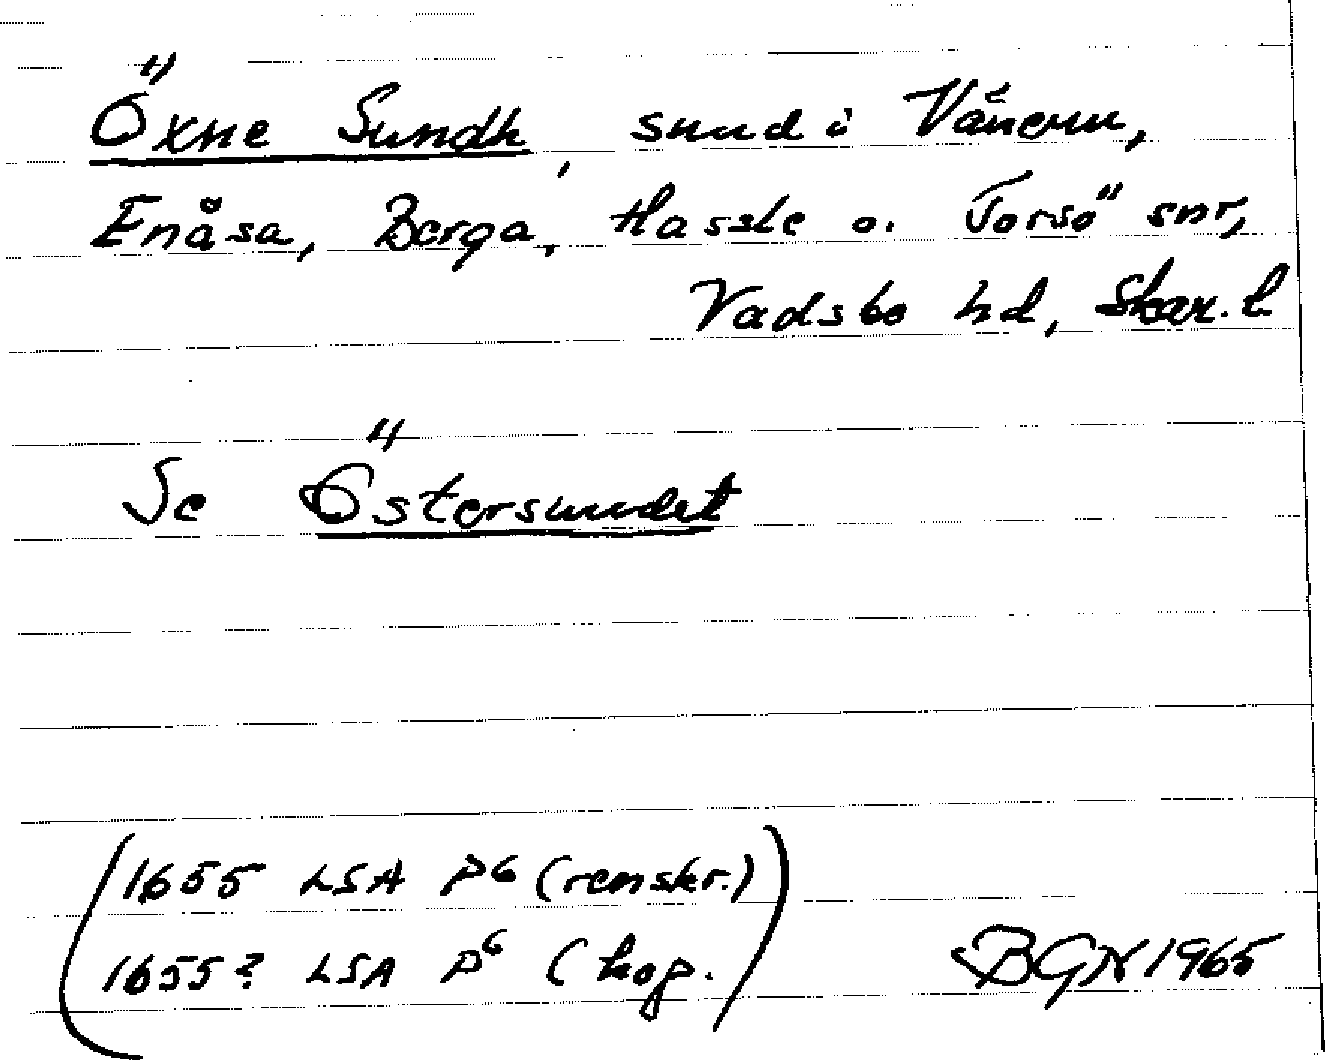 Öxne Sundh, sund i Vänern,
Enåsa, Berga, Hassle o. Torsö snr,
Vadsbo hd, Skar. l
Se Östersundet
(1655 LSA P6 (renskr.)
1655? LSA P6 (kop.)
BGN 1965